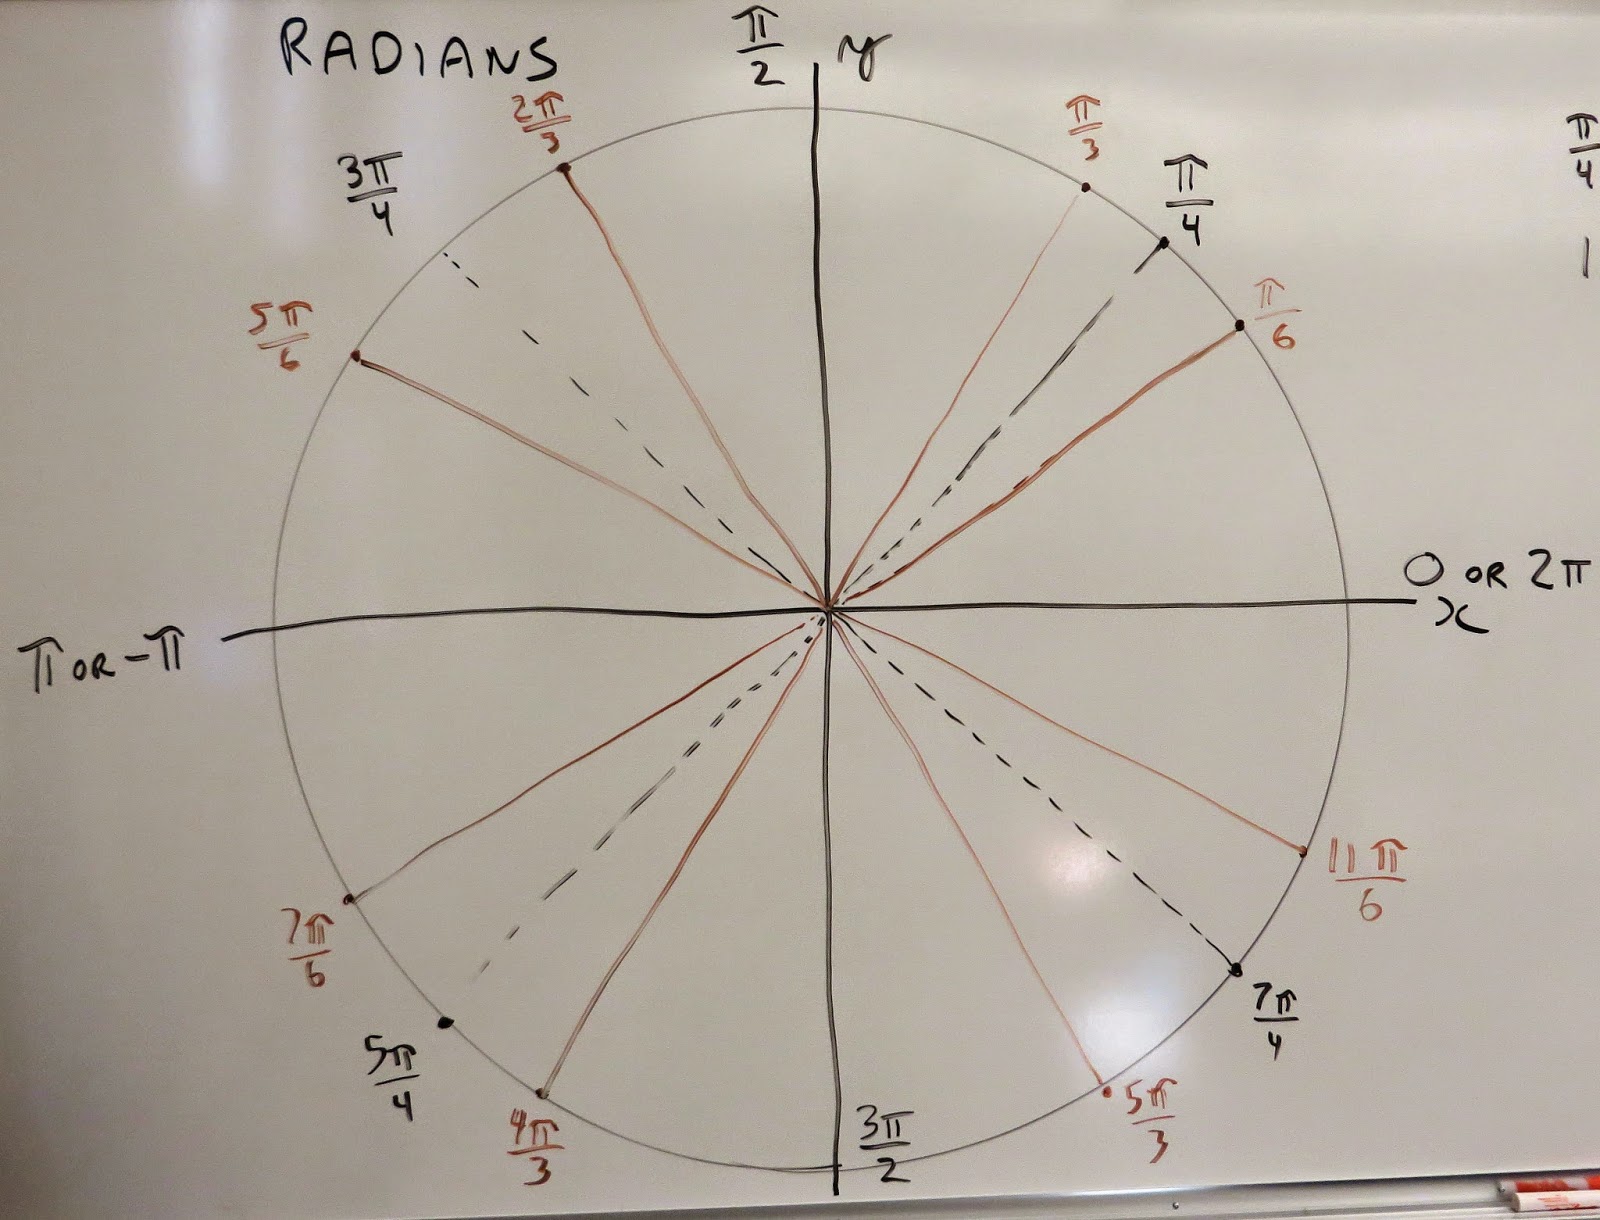 RADIANS
π/2
y
2π/3
π/3
π/4
3π/4
π/4
1
5π/6
π/6
0 OR 2π
x
π OR -π
11π/6
7π/6
7π/4
5π/4
4π/3
3π/2
5π/3